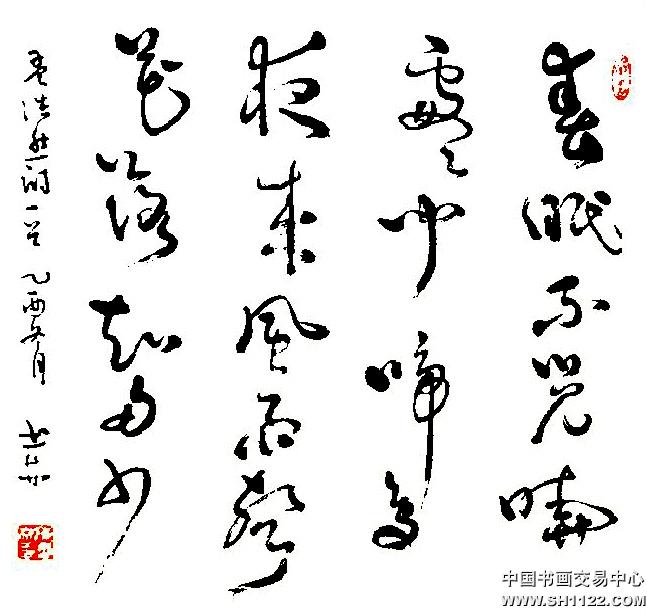 春眠不觉晓
处处闻啼鸟
夜来风雨声
花落知多少
孟浩然诗一首 乙酉年月
中国书画交易中心
WWW.SH1122.COM